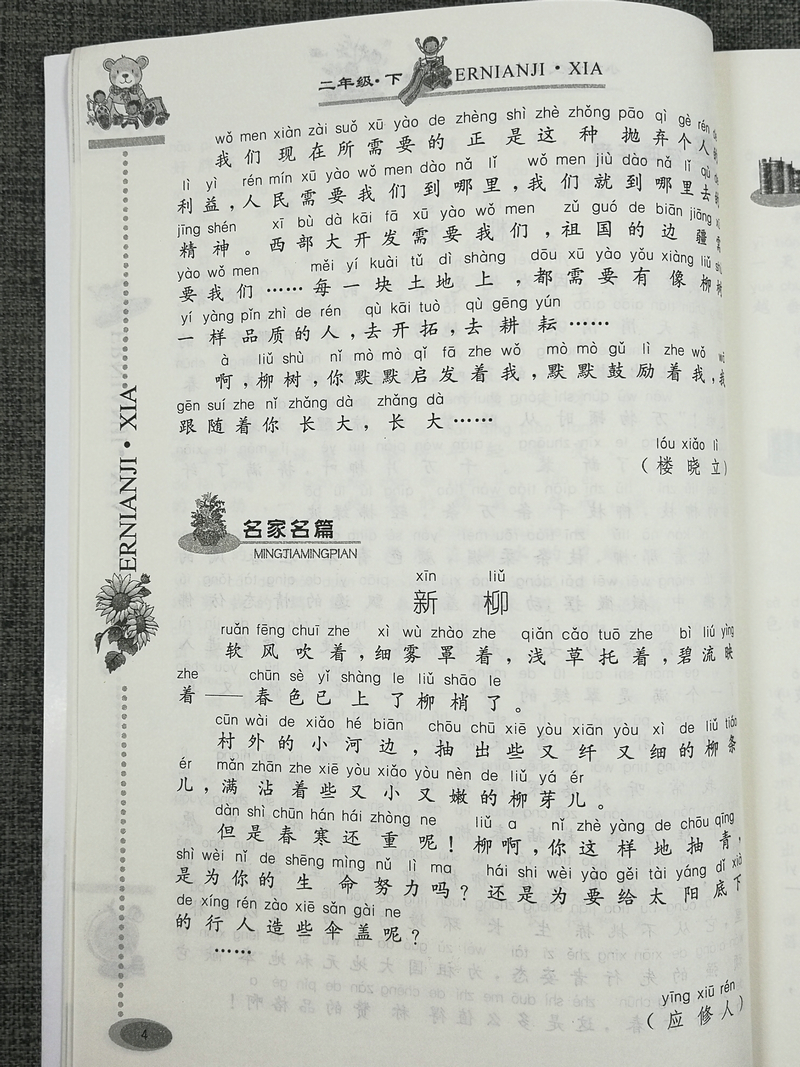 二年级·下 ERNIANJI·XIA
wǒ men xiàn zài suǒ xū yào de zhèng shì zhè zhǒng pāo qì gè rén
我们现在所需要的正是这种抛弃个人
lì yì rén mín xū yào wǒ men dào nǎ lǐ wǒ men jiù dào nǎ lǐ qù
利益,人民需要我们到哪里,我们就到哪里去
jīng shén xī bù dà kāi fā xū yào wǒ men zǔ guó de biān jiāng
精神。西部大开发需要我们,祖国的边疆需
yào wǒ men měi yí kuài tǔ dì shàng dōu xū yào yǒu xiàng liǔ shù
要我们……每一块土地上,都需要有像柳树
yí yàng pǐn zhì de rén qù kāi tuò qù gēng yún
一样品质的人,去开拓,去耕耘……
à liǔ shù nǐ mò mò qǐ fā zhe wǒ mò mò gǔ lì zhe wǒ wǒ
啊,柳树,你默默启发着我,默默鼓励着我,我
gēn suí zhe nǐ zhǎng dà zhǎng dà
跟随着你长大,长大……
lóu xiǎo lì
(楼晓立)
ERNIANJI·XIA
名家名篇
MINGJIAMINGPIAN
xīn liǔ
新柳
ruǎn fēng chuī zhe xì wù zhào zhe qiǎn cǎo tuō zhe bì liú yìng
软风吹着,细雾罩着,浅草托着,碧流映
zhe chūn sè yǐ shàng le liǔ shāo le
着——春色已上了柳梢了。
cūn wài de xiǎo hé biān chōu chū xiē yòu xiān yòu xì de liǔ tiáo
村外的小河边,抽出些又纤又细的柳条
ér mǎn zhān zhe xiē yòu xiǎo yòu nèn de liǔ yá ér
儿,满沾着些又小又嫩的柳芽儿。
dàn shì chūn hán hái zhòng ne liǔ a nǐ zhè yàng de chōu qīng
但是春寒还重呢!柳啊,你这样地抽青,
shì wèi nǐ de shēng mìng nǔ lì ma hái shì wèi yào gěi tài yáng dǐ xià
是为你的生命努力吗?还是为要给太阳底下
de xíng rén zào xiē sǎn gài ne
的行人造些伞盖呢?
……
yīng xiū rén
(应修人)
4